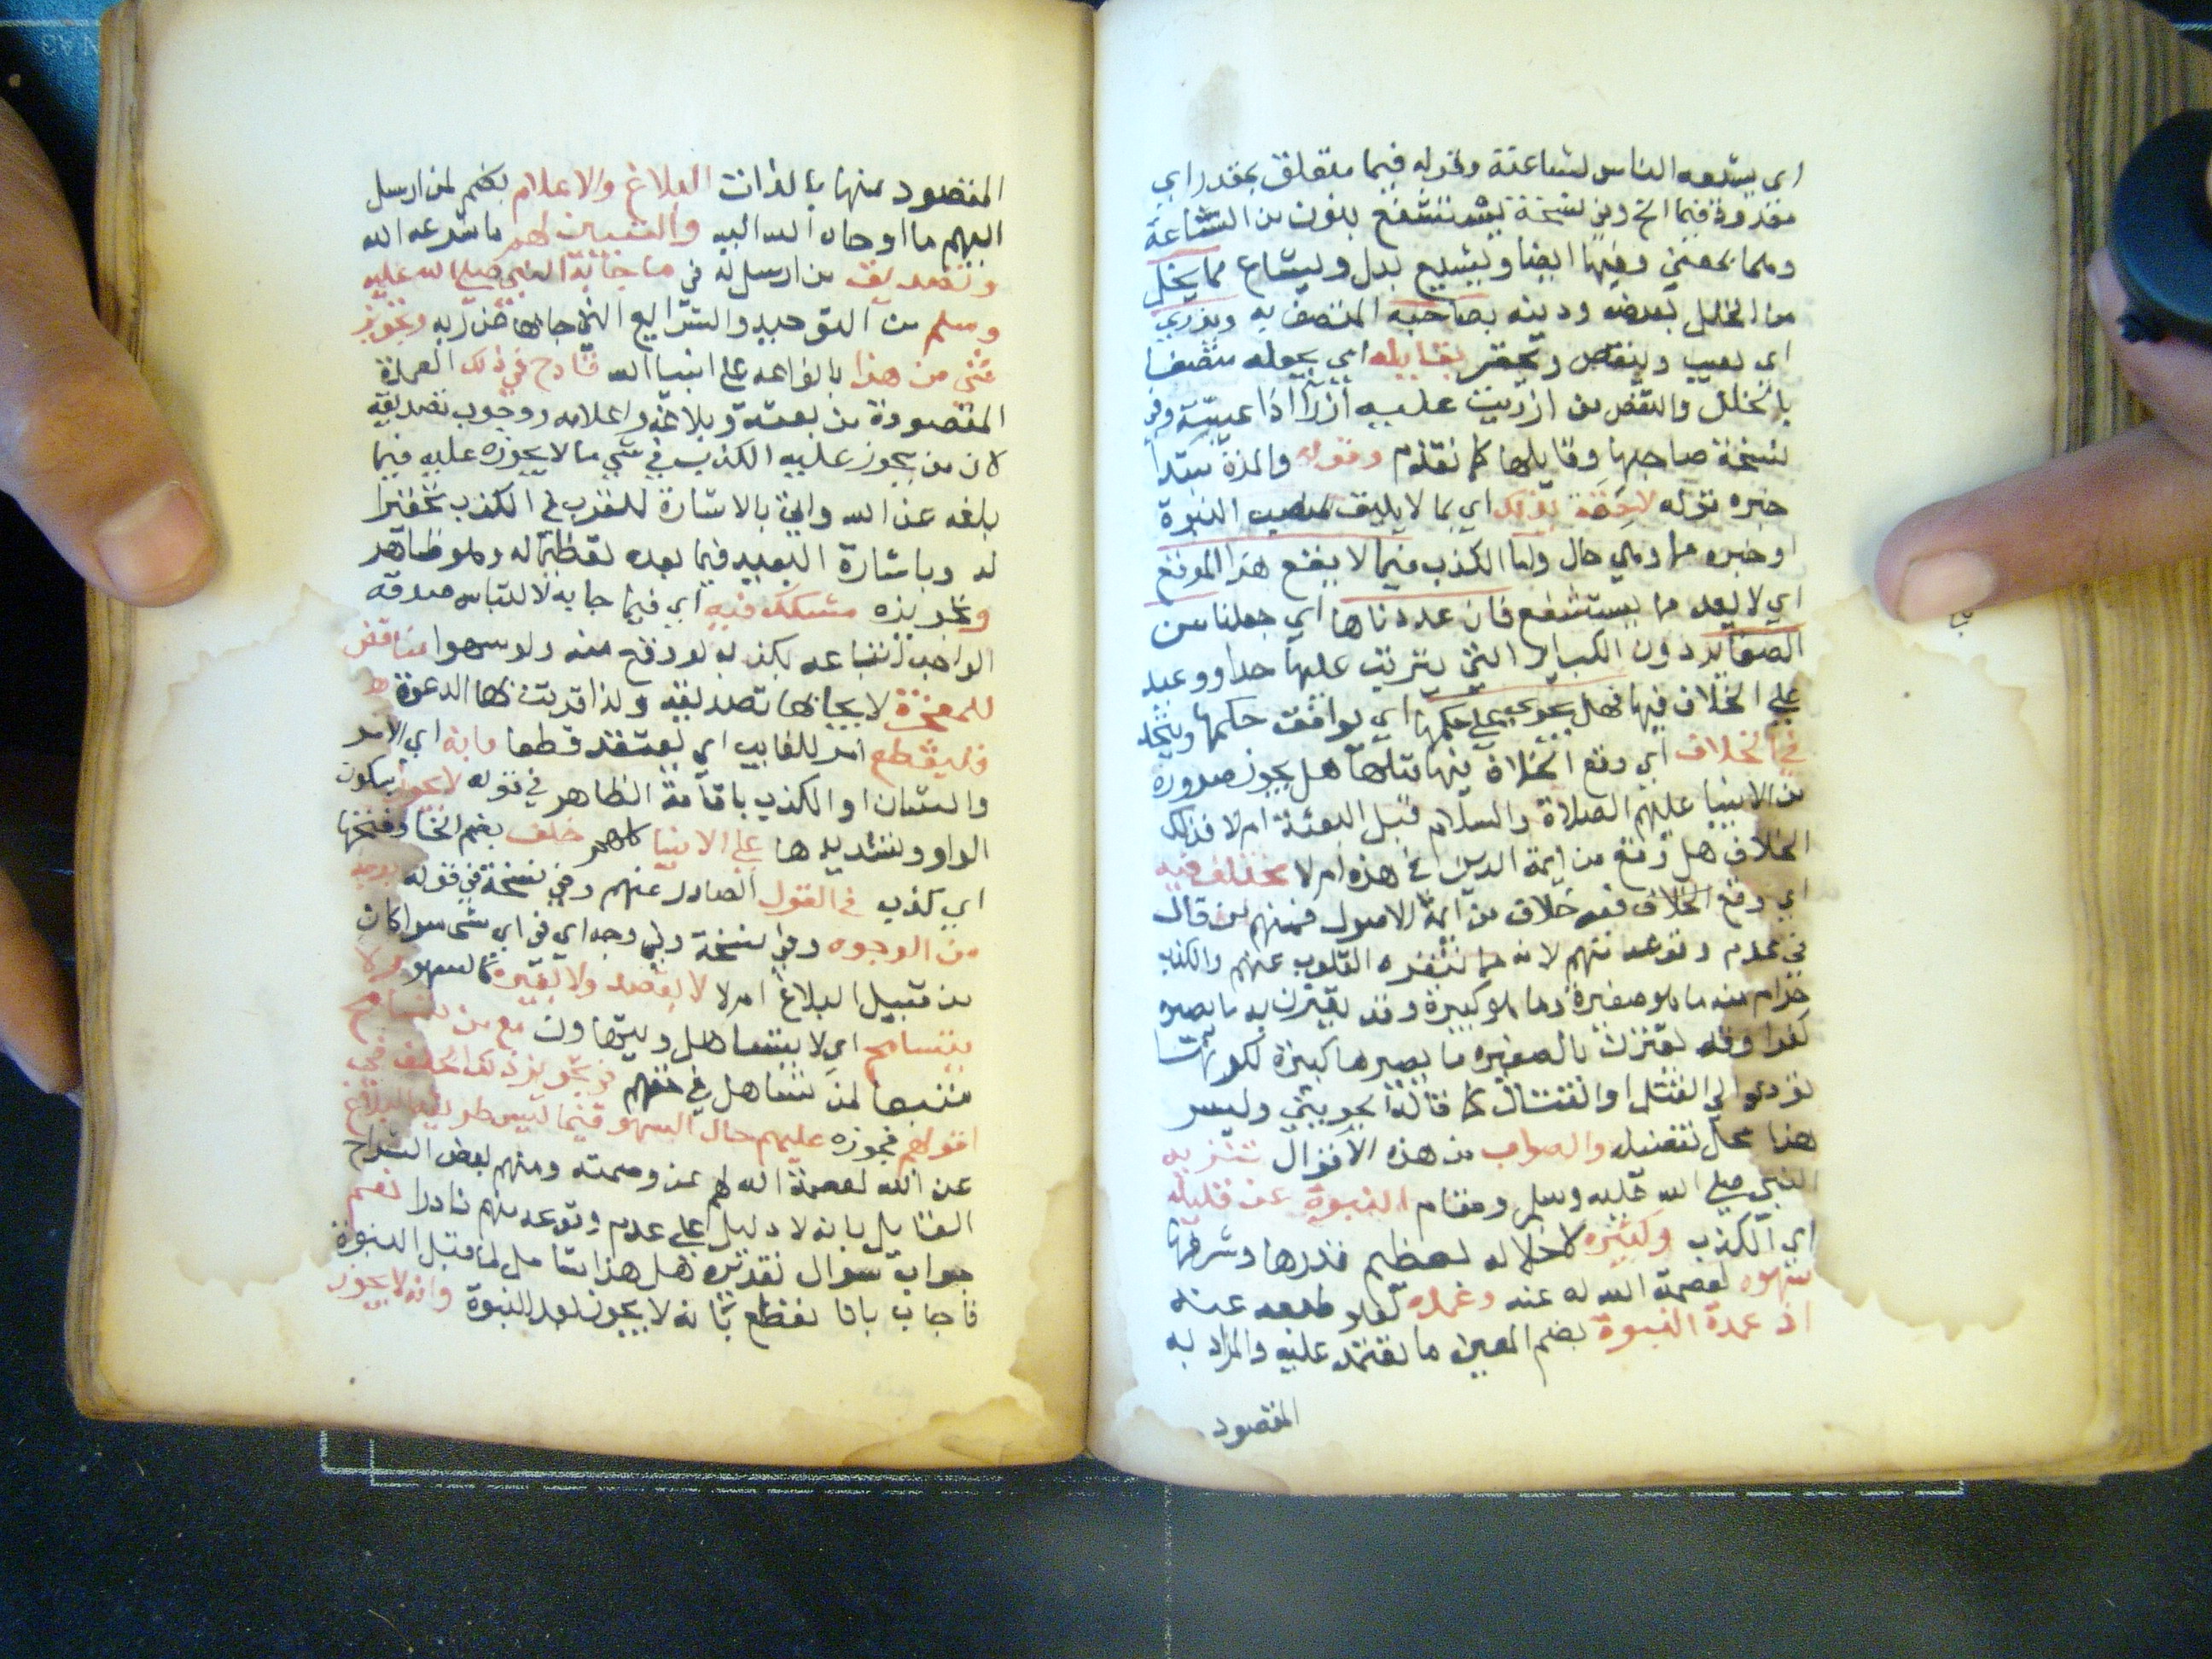 اي يستبعه الناس لشاعته وقوله فيما متعلق بمقدر اي
مقدرة فيما الخ وفي نسخة يستشفع بنون من الشناعة
وهما بمعنى وفيها ايضا ويشيع بدل ويشاع مما يخل
من الخلل بعرضه ودينه بصاحبه المتصف به ويزري
اي يعيب وينقص ويحقر بقايله اي يجعله متصفا
بالخلل والنقص من ازريت عليه أزرأ اذا عيبته وفي
نسخة صاحبها وقايلها كما تقدم وقوله والمرة مبتدا
خبره قوله لاحقة بذلك اي بما لا يليق بمنصب النبوة
او خبره مها وهي حال واما الكذب فيما لا يقع هذا الموقع
اي لا يعد مما يستشفع فان عددناها اي جعلنا من
الصغاير دون الكباير التي يترتب عليها حد او وعيد
على الخلاف فيها فهل تجري على حكمها اي يوافقت حكمها ويتحد
في الخلاف اي وقع الخلاف فيها مثلها هل يجوز صدوره
من الانبيا عليهم الصلاة والسلام قبل البعثة ام لا فذلك
الخلاف هل وقع من ايمة الدين في هذه ام لا مختلف فيه
اي وقع الخلاف ففيه خلاف من ايمة الاصول فمنهم من قال
في عدم وقوعه منهم لانه مما تنفر القلوب عنهم والكذب
حرام منه ما هو صغيرة وما هو كبيرة وقد يقترن به ما يصيره
كفرا وقد يقترن بالصغيره ما يصيرها كبيرة لكونها
تؤدي الى القتل او القتال كما قاله الجويني وليس
هذا محل تفصيله والصواب من هذه الاقوال تنزيه
النبي صلى الله عليه وسلم ومقام النبوة عن قليله
اي الكذب وكثيره لاخلاله لعظيم قدرها وشرفها
سهوه لعصمة الله له عنه وعمده لعلو طبعه عنه
اذ عمدة النبوة بضم العين ما يعتمد عليه والمراد به
المقصود
المقصود منها بالذات البلاغ والاعلام بكم لمن ارسل
اليهم ما اوحاه الله اليه والتبيين لهم ما شرعه الله
وتصديق من ارسل له في ما جا به النبي صلى الله عليه
وسلم من التوحيد والشرايع التي جا بها من ربه وتجويز
شي من هذا بانواعه على انبيا الله قادح في ذلك العمدة
المقصودة من بعثته وبلاغه واعلامه ووجوب تصديقه
لان من يجوز عليه الكذب في شي ما لا يجوزه عليه فيما
بلغه عن الله واتى بالاشارة للقرب في الكذب تحقيرا
له وباشارة البعيد فيما بعده تعظيما له وهو ظاهر
وتجويزه مشكك فيه اي فيما جا به لالتباس صدقه
الواجب اتباعه بكذبه لو وقع منه ولو سهوا مناقض
للمعجزة لايجابها تصديقه ولذا قرنت بها الدعوة
فليقطع امر للغايب اي يعتقد قطعا بانه اي الامر
والشان او الكذب باقامة الظاهر في قوله لا يجوز بسكون
الواو وتشديدها على الانبيا كلهم خلف بضم الخا وفتحها
اي كذب في القول الصادر عنهم وفي نسخة في قوله بوجه
من الوجوه وفي نسخة وفي وجه اي في اي شي سوا كان
من قبيل البلاغ ام لا لا بقصد ولا بغيره كالسهو ولا
يتسامح اي لا يتساهل ويتهاون مع من تسامح
متبعا لمن تساهل في حقهم في تجويز ذلك الخلف في
اقوالهم فجوزه عليهم حال السهو فيما ليس طريقه البلاغ
عن الله لعصمة الله لهم عن وصمته ومنهم بعض الشراح
القايل بانه لا دليل على عدم وقوعه منهم نادرا نعم
جواب سوال تقديره هل هذا شامل لما قبل النبوة
فاجاب بانا نقطع بانه لا يجوز بعد النبوة وانه لا يجوز